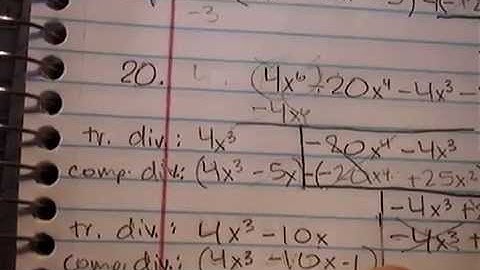 -3
20. (4x⁶ - 20x⁴ - 4x³ -
-4x⁶
tr. div.: 4x³ -20x⁴ - 4x³
comp. div.: (4x³ - 5x) -(-20x⁴ + 25x²
-4x³ +
tr. div.: 4x³ - 10x -4x³ +
comp. div.: (4x³ - 10x - 1)